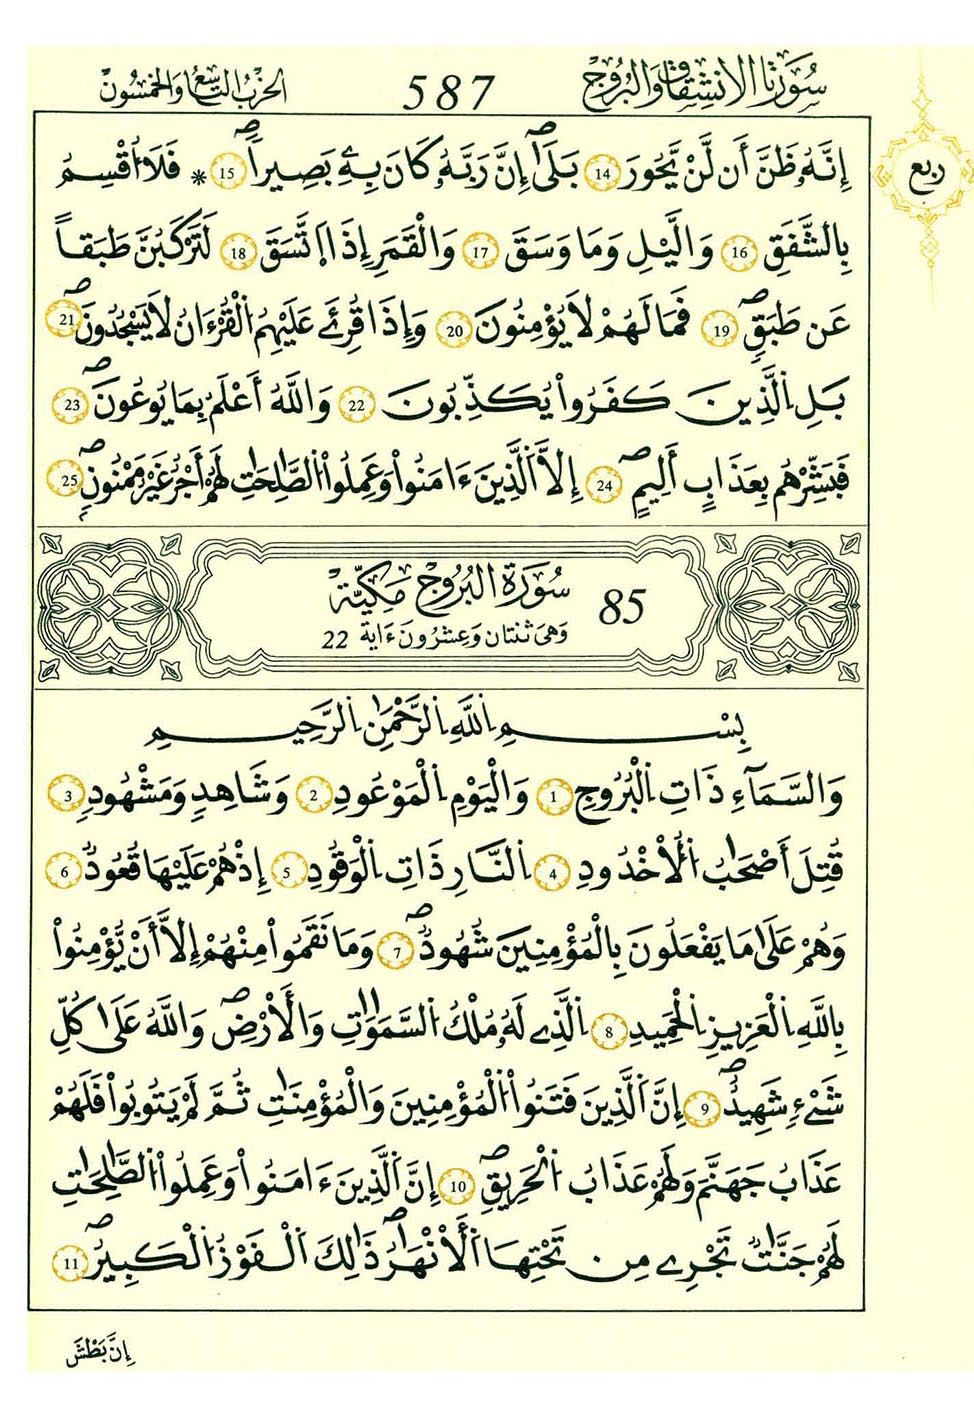 سُورَتَا الِانشِقَاقِ وَالبُرُوجِ 587 الحِزْبُ التَّاسِعُ وَالخَمْسُونَ
إِنَّهُۥ ظَنَّ أَن لَّنْ يَّحُورَ 14 بَلَىٰٓ إِنَّ رَبَّهُۥ كَانَ بِهِۦ بَصِيراࣰ ص 15 * فَلَآ أُقْسِمُ
ربع
بِالشَّفَقِ 16 وَالَّيْلِ وَمَا وَسَقَ 17 وَالْقَمَرِ إِذَا اَ۪تَّسَقَ 18 لَتَرْكَبُنَّ طَبَقاً
عَن طَبَقٍ ص 19 فَمَا لَهُمْ لَا يُؤْمِنُونَ 20 وَإِذَا قُرِئَ عَلَيْهِمُ الْقُرْءَانُ لَا يَسْجُدُونَ ص 21
بَلِ الَّذِينَ كَفَرُواْ يُكَذِّبُونَ 22 وَاللَّهُ أَعْلَمُ بِمَا يُوعُونَ ص 23
فَبَشِّرْهُم بِعَذَابٍ أَلِيمٍ ص 24 إِلَّا الَّذِينَ ءَامَنُواْ وَعَمِلُواْ الصَّٰلِحَٰتِ لَهُمْ أَجْرٌ غَيْرُ مَمْنُونٍ ص 25
85 سُورَةُ البُرُوجِ مَكِّيَّة
وَهِيَ ثْنَتَانِ وَعِشْرُونَ ءَايَة 22
بِسْمِ اللَّهِ الرَّحْمَٰنِ الرَّحِيمِ
وَالسَّمَآءِ ذَاتِ الْبُرُوجِ 1 وَالْيَوْمِ الْمَوْعُودِ 2 وَشَاهِدٍ وَمَشْهُودٍ 3
قُتِلَ أَصْحَٰبُ الْأُخْدُودِ 4 النَّارِ ذَاتِ الْوَقُودِ 5 إِذْ هُمْ عَلَيْهَا قُعُودٌ 6
وَهُمْ عَلَىٰ مَا يَفْعَلُونَ بِالْمُؤْمِنِينَ شُهُودٌ ص 7 وَمَا نَقَمُواْ مِنْهُمْ إِلَّا أَنْ يُّؤْمِنُواْ
بِاللَّهِ الْعَزِيزِ الْحَمِيدِ 8 الَّذِي لَهُۥ مُلْكُ السَّمَٰوَٰتِ وَالْأَرْضِ ص وَاللَّهُ عَلَىٰ كُلِّ
شَيْءٍ شَهِيدٌ ص 9 إِنَّ الَّذِينَ فَتَنُواْ الْمُؤْمِنِينَ وَالْمُؤْمِنَٰتِ ثُمَّ لَمْ يَتُوبُواْ فَلَهُمْ
عَذَابُ جَهَنَّمَ وَلَهُمْ عَذَابُ الْحَرِيقِ ص 10 إِنَّ الَّذِينَ ءَامَنُواْ وَعَمِلُواْ الصَّٰلِحَٰتِ
لَهُمْ جَنَّٰتٌ تَجْرِي مِن تَحْتِهَا الْأَنْهَٰرُ ص ذَٰلِكَ الْفَوْزُ الْكَبِيرُ ص 11
إِنَّ بَطْشَ